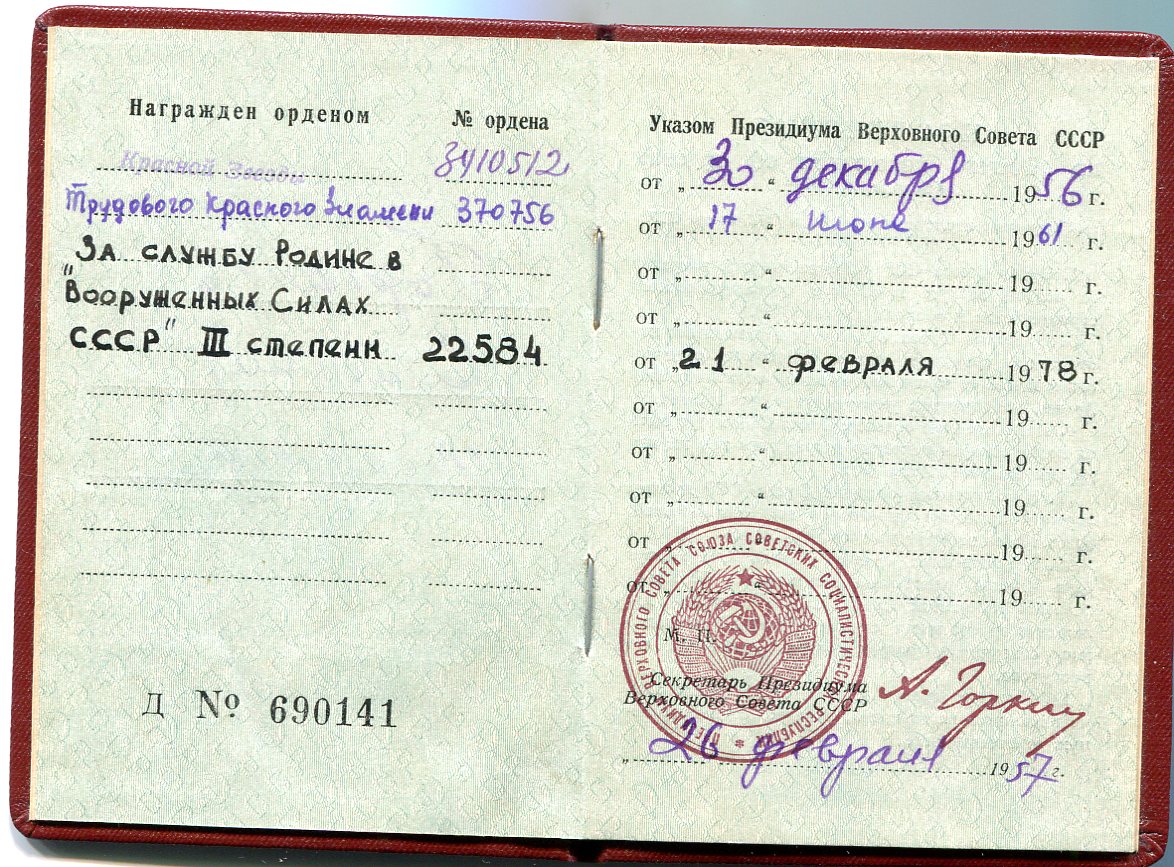 Награжден орденом № ордена
Красной Звезды 3410512
Трудового Красного Знамени 370756
"За службу Родине в
"Вооруженных Силах
СССР" III степени 22584
Д № 690141
Указом Президиума Верховного Совета СССР
от „30“ декабря 1956 г.
от „17“ июня 1961 г.
от „ “ 19 г.
от „ “ 19 г.
от „21“ февраля 1978 г.
от „ “ 19 г.
от „ “ 19 г.
от „ “ 19 г.
от „ “ 19 г.
от „ “ 19 г.
ПРЕЗИДИУМ ВЕРХОВНОГО СОВЕТА СОЮЗА СОВЕТСКИХ СОЦИАЛИСТИЧЕСКИХ РЕСПУБЛИК
М. П.
Секретарь Президиума
Верховного Совета СССР А. Горкин
„26 февраля 1957 г.